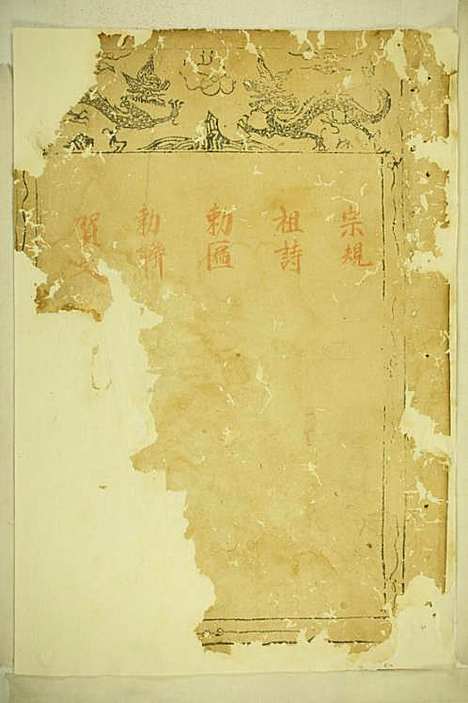 宗規
祖詩
勅匾
勅聯
賀文